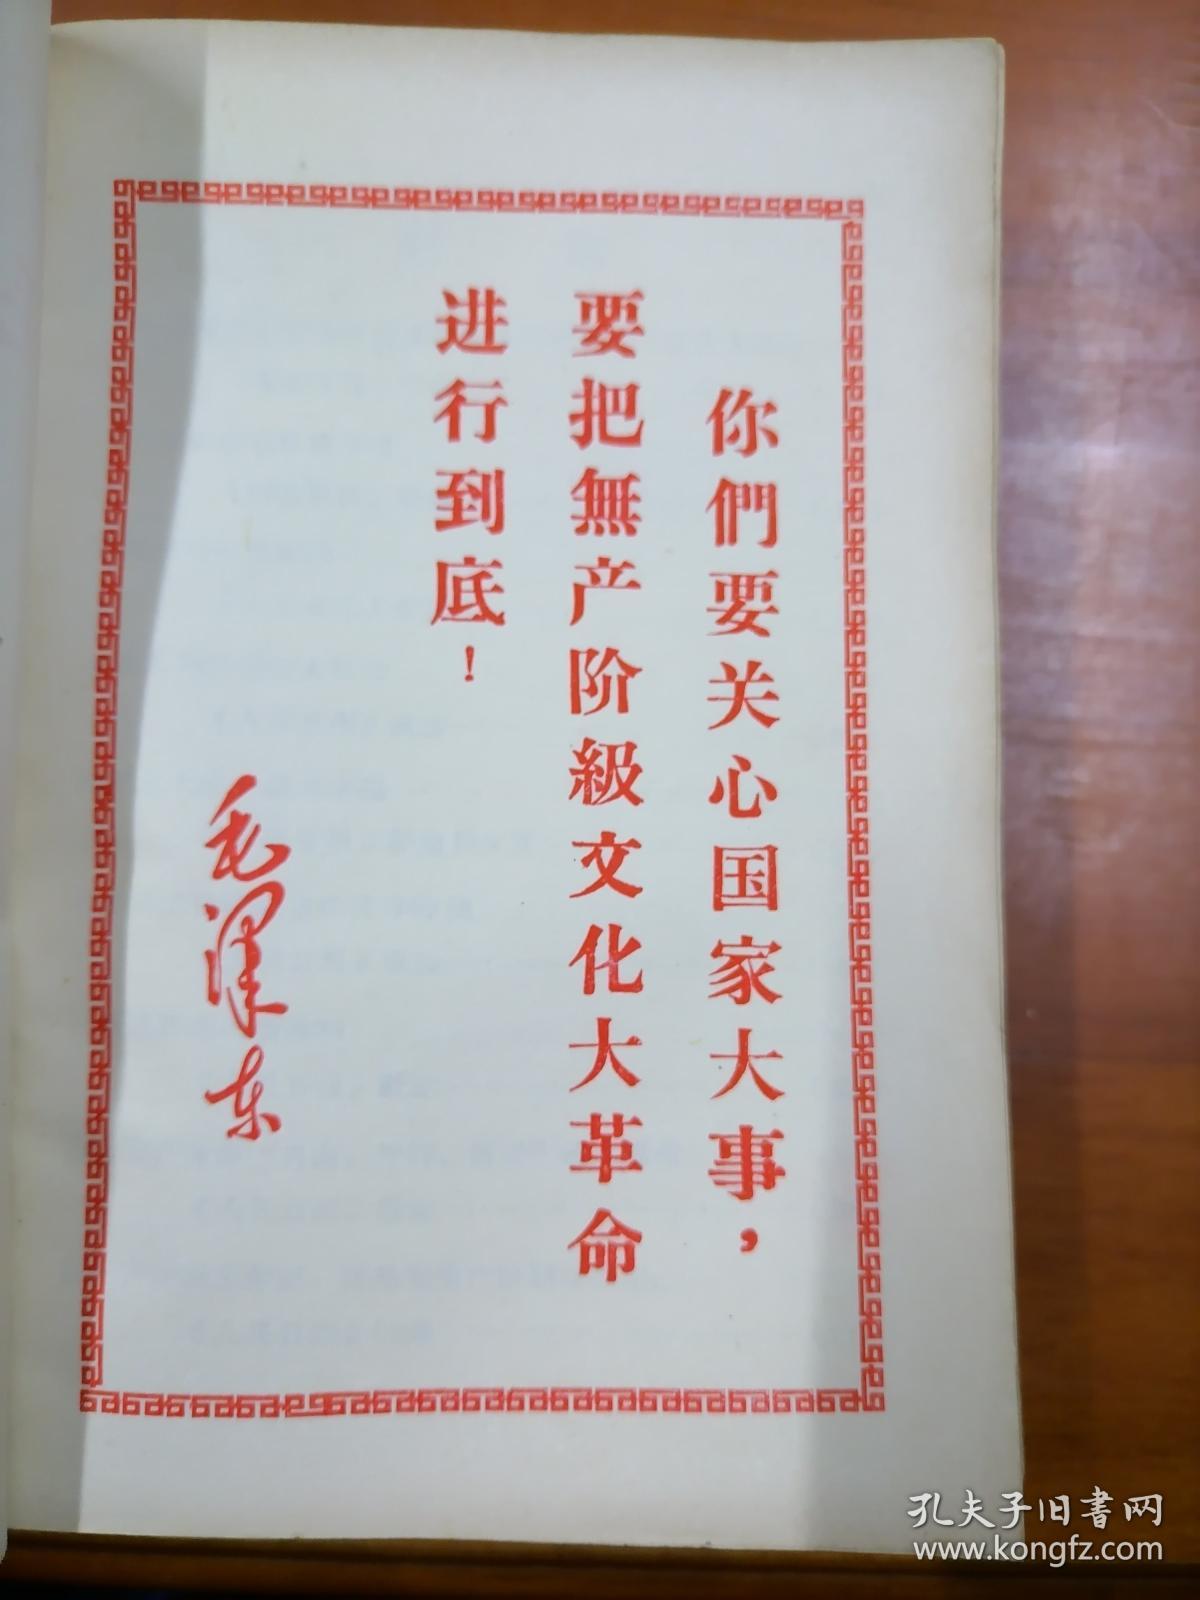 你們要关心国家大事，
要把無产阶級文化大革命
进行到底！
毛泽东
孔夫子旧书网
www.kongfz.com